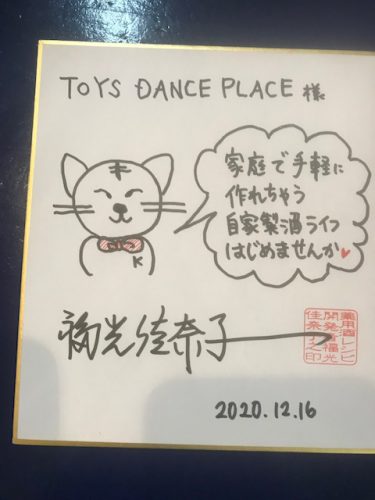 TOYS DANCE PLACE 様
家庭で手軽に
作れちゃう
自家製酒ライフ
はじめませんか♥
K
福光佳奈子
薬用酒レシピ
開発福光
佳奈子之印
2020.12.16